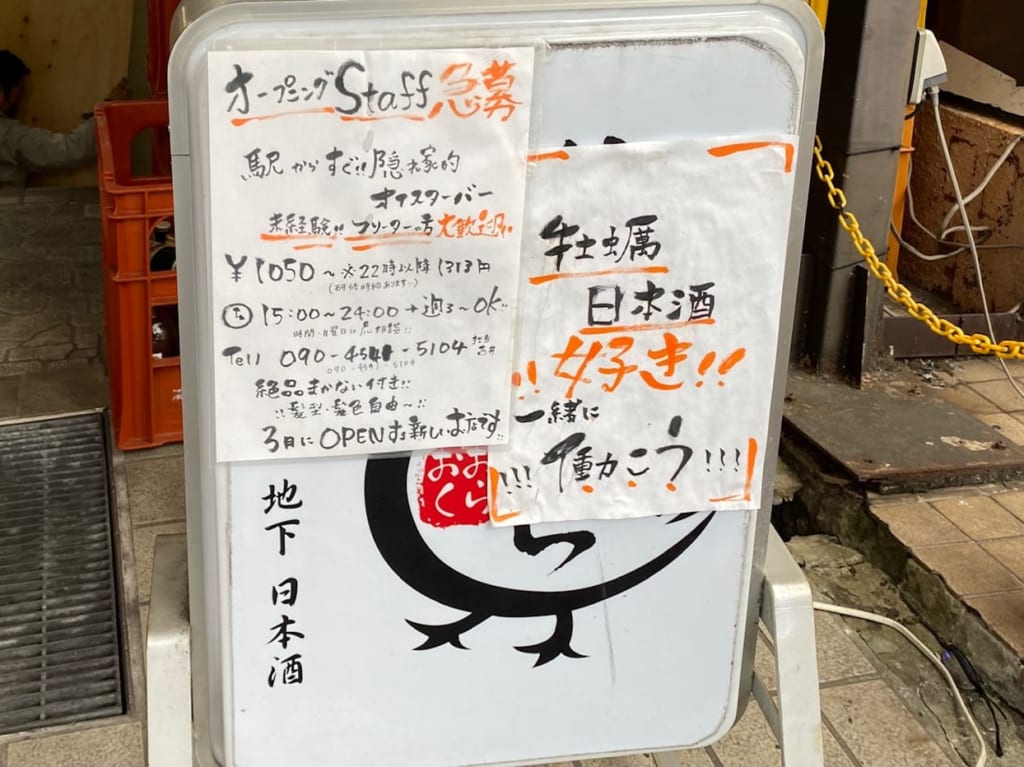 オープニングStaff急募
駅からすぐ!!隠れ家的
オイスターバー
未経験!!フリーターの方大歓迎!!
¥1050~※22時以降1313円
(研修時給あります!!)
15:00~24:00 +週3~OK!!
時間・曜日は応相談!!
Tell 090-4541-5104
090-4541-5104
絶品まかない付き!!
!!髪型・髪色自由~!!
3月にOPENする新しいお店です!!
牡蠣
日本酒
!!好き!!
一緒に
!!!働こう!!!
地下 日本酒